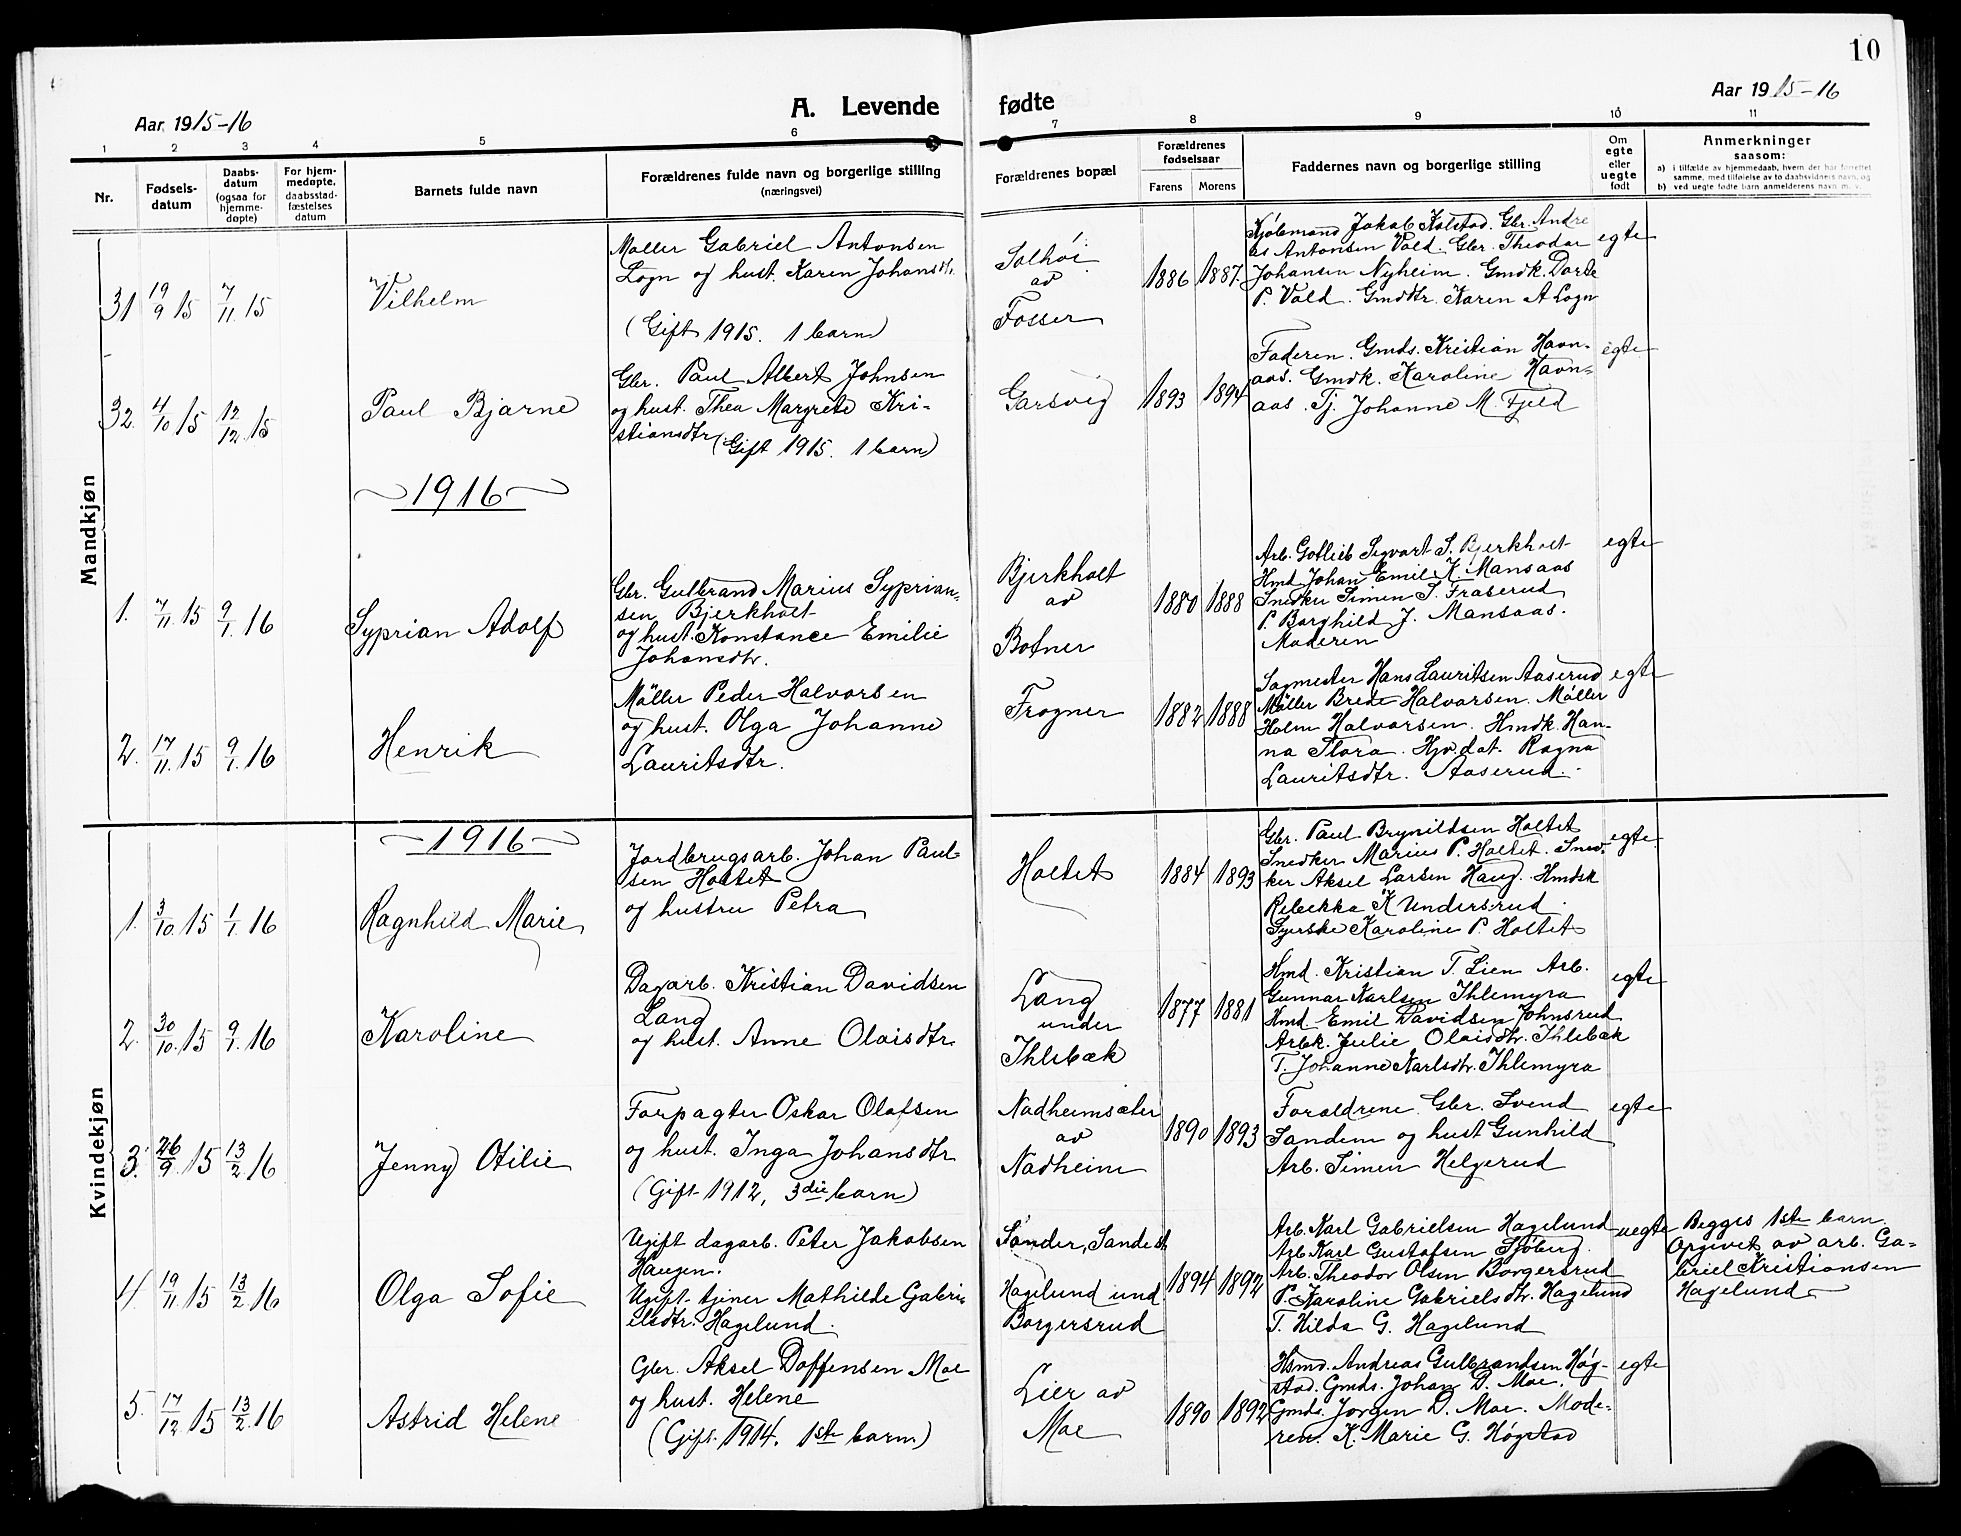 10
Aar 1915-16
A. Levende
fødte
Aar 1915-16
1 2 3 4 5 6 7 8 9 10 11
Nr.
Fødsels-
datum
Daabs-
datum
(ogsaa for
hjemme-
døpte)
For hjem-
medøpte,
daabsstad-
fæstelses
datum
Barnets fulde navn
Forældrenes fulde navn og borgerlige stilling
(næringsvei)
Forældrenes bopæl
Forældrenes
fødselsaar
Farens Morens
Faddernes navn og borgerlige stilling
Om
egte
eller
uegte
født
Anmerkninger
saasom:
a) i tilfælde av hjemmedaab, hvem der har forrettet
samme, med tilføielse av to daabsvidners navn, og
b) ved uegte fødte barn anmelderens navn m. v.
Mandkjøn
31 19/9 15 7/11 15
Vilhelm
Møller Gabriel Antonsen
Logn og hust. Karen Johansdtr.
(Gift 1915. 1 barn)
Solhøi
av
Fosser
1886 1887.
Kjøbmand Jakob Kolstad. Gbr. Andre
as Antonsen Vold. Gbr. Theodor
Johansen Nyheim. Gmdk. Dorde
P. Vold. Gmddtr. Karen A Logn
egte
32. 4/10 15 12/12 15
Paul Bjarne
Gbr. Paul Albert Johnsen
og hust. Thea Margrete Kri-
stiansdtr. (Gift 1915. 1 barn)
Garsvig
1893 1894
Faderen. Gmds. Kristian Havn-
aas. Gmdk. Karoline Havn-
aas. Tj. Johanne M. Fjeld
egte
1916
1. 7/11 15 9/1 16
Syprian Adolf
Gbr. Gulbrand Marius Syprian-
sen Bjerkholt
og hust. Konstance Emilie
Johansdtr.
Bjerkholt
av
Botner
1880 1888
Arb. Gotlieb Sigvart S. Bjerkholt
Hmd Johan Emil K. Mansaas
Snedker Simen T. Fraserud
P. Borghild J. Mansaas.
Moderen
egte
2. 17/11 15 9/1 16
Henrik
Møller Peder Halvorsen
og hust. Olga Johanne
Lauritsdtr.
Frogner
1882 1888
Sagmester Hans Lauritsen Aaserud
Møller Brede Halvorsen. Møller
Holm Halvorsen. Hmdk. Han-
na Flora. Hjv. dat. Ragna
Lauritsdtr. Aaserud.
egte
Kvindekjøn
1916
1. 3/10 15 1/1 16
Ragnhild Marie
Jordbrugsarb. Johan Paul-
sen Holtet
og hustru Petra
Holtet
1884 1893
Gbr. Paul Brynildsen Holtet
Snedker Marius P. Holtet. Sned-
ker Aksel Larsen Haug. Hmdsk
Rebekka K Undersrud.
Syerske Karoline P. Holtet
egte.
2. 30/10 15 9/1 16
Karoline
Dagarb. Kristian Davidsen
Lang
og hust. Anne Olaisdtr.
Lang
under
Ihlebæk
1877 1881
Hmd. Kristian T. Lien Arb.
Gunnar Karlsen Ihlemyra
Hmd Emil Davidsen Johnsrud
Arbk. Julie Olaisdtr. Ihlebæk
T. Johanne Karlsdtr. Ihlemyra
egte
3. 26/9 15 13/2 16
Jenny Otilie
Forpagter Oskar Olafsen
og hust. Inga Johansdtr
(Gift 1912, 3die barn)
Nadheimsæter
av
Nadheim
1890 1893
Forældrene. Gbr. Svend
Sandem og hust Gunhild
Arb. Simen Helgerud
egte
4. 19/11 15 13/2 16
Olga Sofie
Ugift dagarb. Peter Jakobsen
Haugen.
Ugift tjener Mathilde Gabri-
elsdtr. Hagelund.
Hagelund und.
Borgersrud
1894 1892
Arb. Karl Gabrielsen Hagelund
Arb. Karl Gustafsen Sjøberg.
Arb. Theodor Olsen Borgersrud
P. Karoline Gabrielsdtr. Hagelund
T. Hilda G. Hagelund
uegte
Begges 1ste barn.
Opgivet av arb. Ga-
briel Kristiansen
Hagelund
5. 17/12 15 13/2 16
Astrid Helene
Gbr. Aksel Doffensen Moe
og hust. Helene
(Gift 1914. 1ste barn)
Lier av
Moe
1890 1892
Hsmd. Andreas Gulbrandsen Høg-
stad. Gmds. Johan D. Moe.
Gmds. Jørgen D. Moe. Mode-
ren. K. Marie G. Høgstad
egte